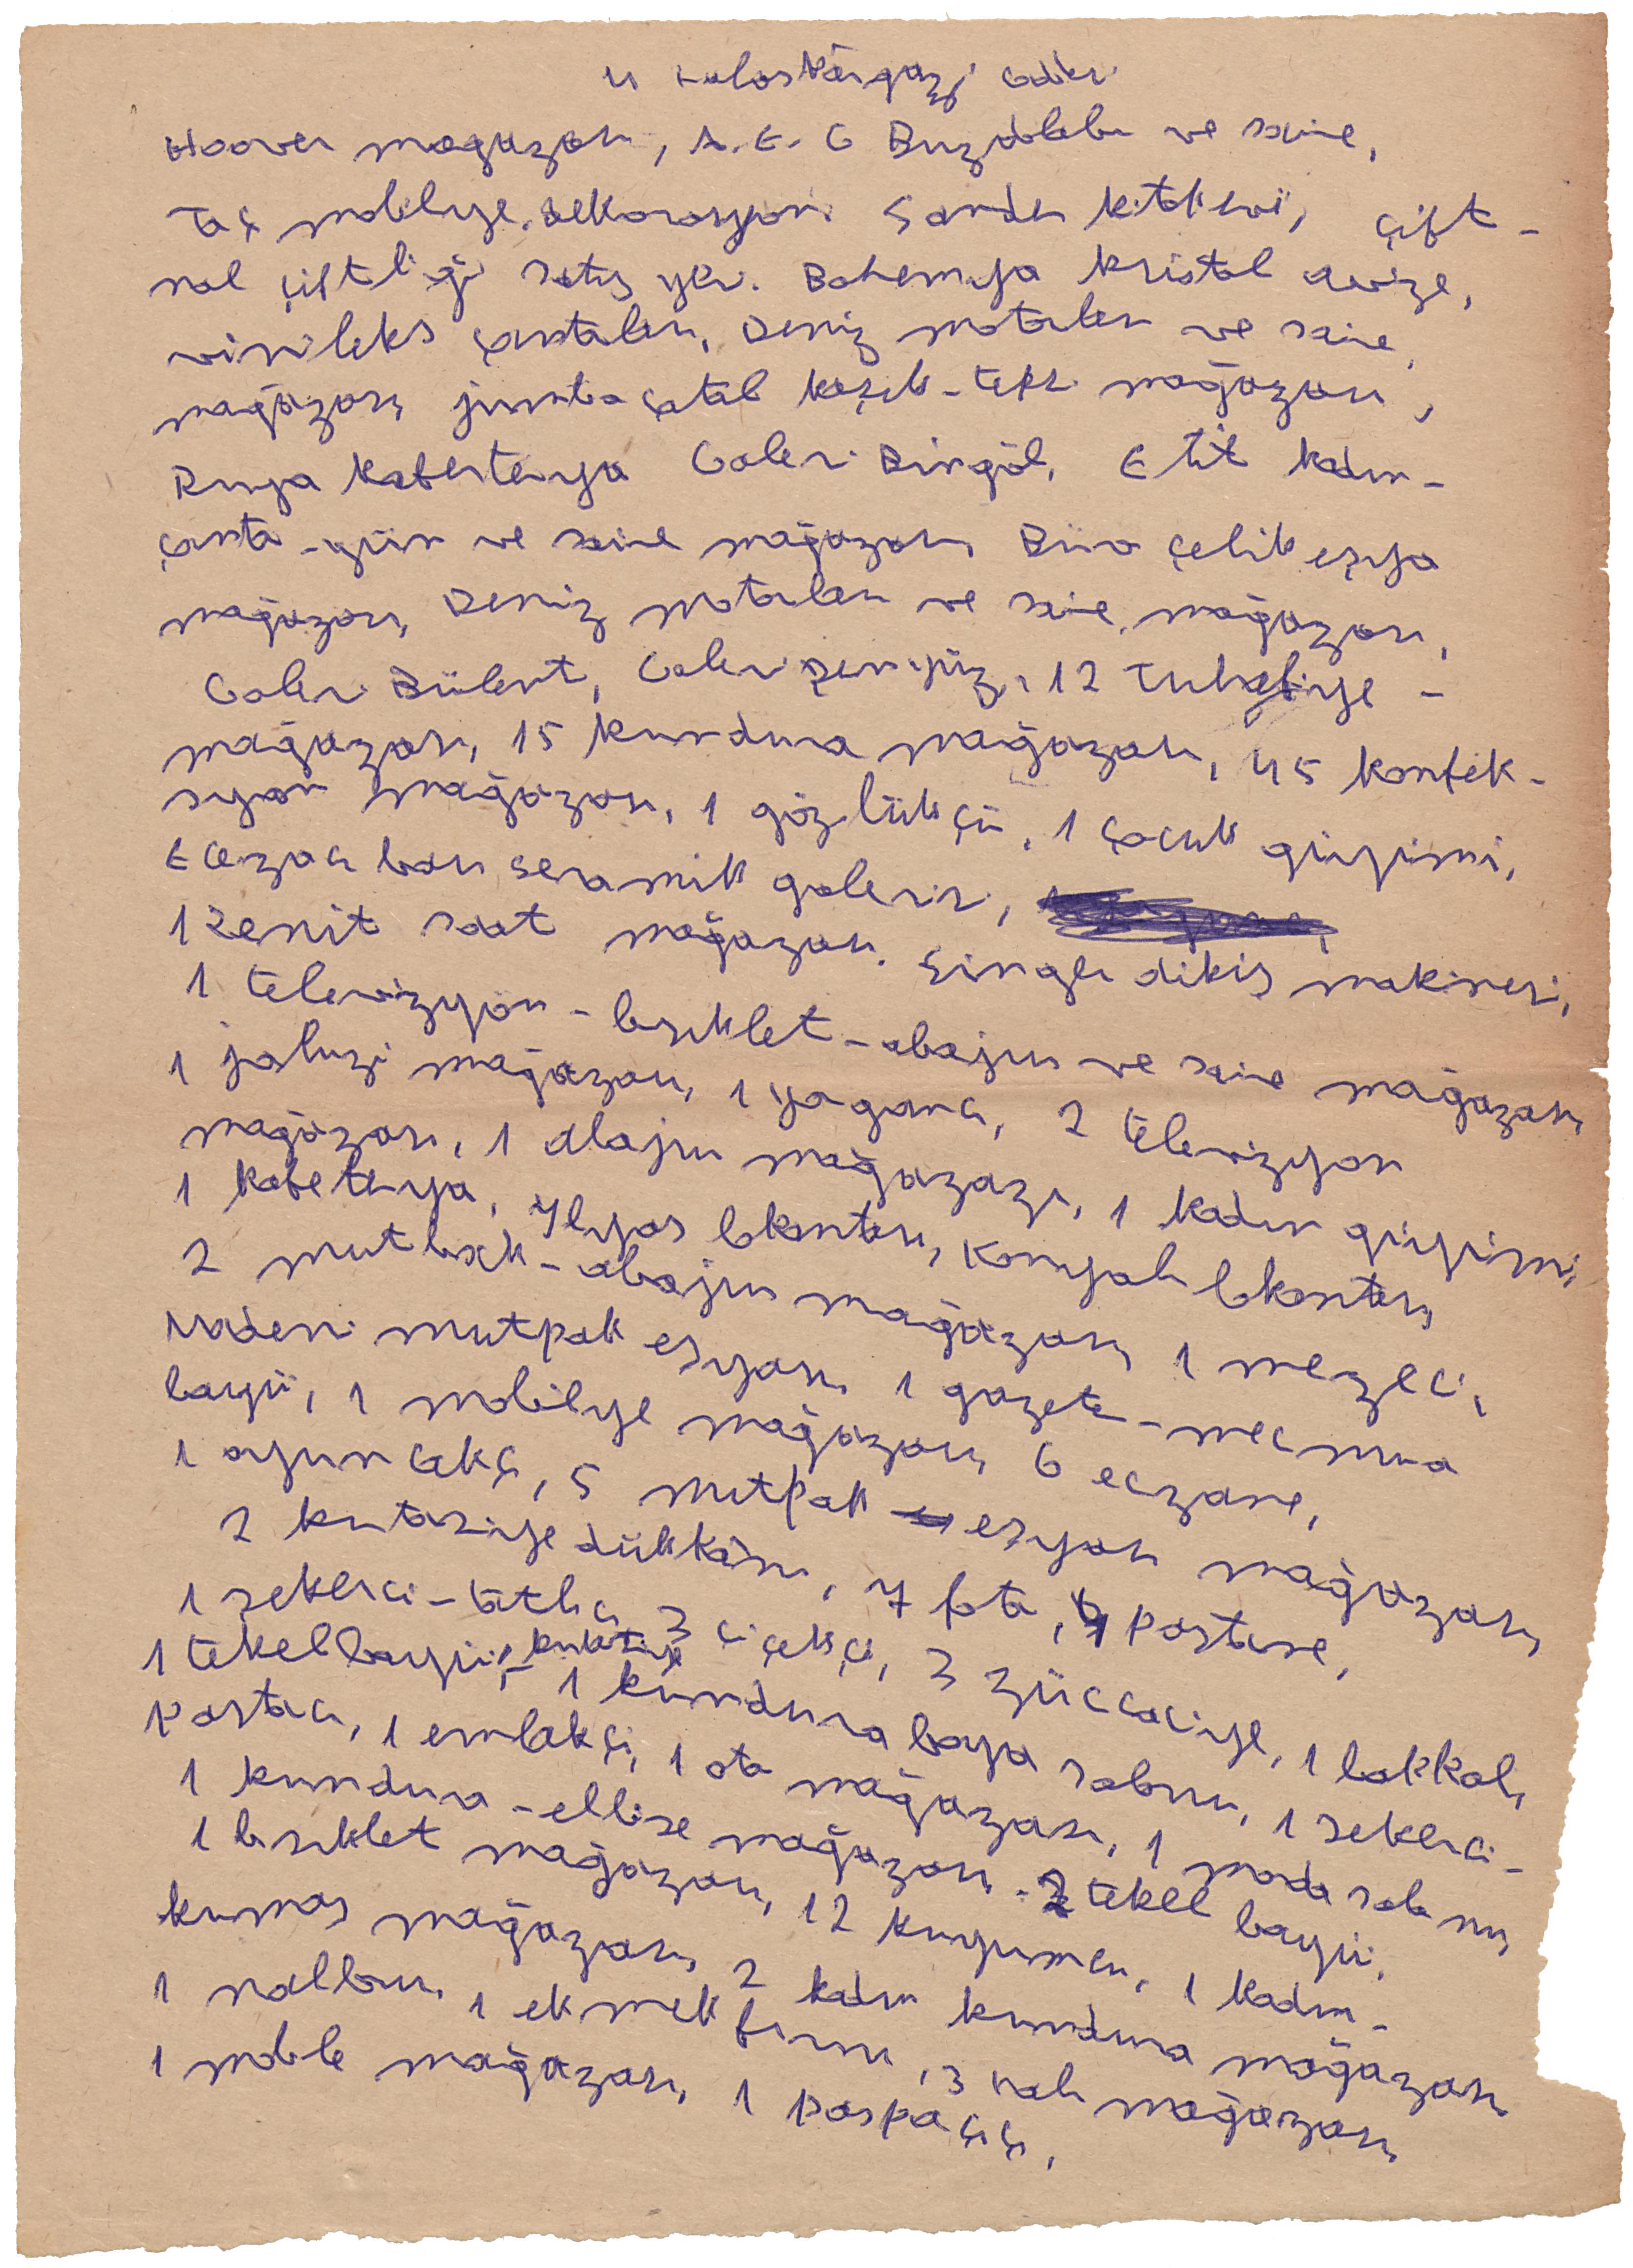 Halaskârgazi Cadde
Hoover magazası, A.E.G Buzdolabı ve saire,
Taç mobilye, dekorasyon Sander kitabevi, Çift-
nal çiftliği satış yeri. Bohemya kristal avize,
vinileks çantaları, Deniz motorları ve saire,
mağazası, jumbo çatal kaşık-tepsi mağazası,
Rüya kafeterya Galeri Bingöl, Elit kadın-
çanta-yün ve saire mağazası, Büro çelik eşya
mağazası, Deniz motorları ve saire mağazası,
Galeri Bülent, Galeri 12 tuhafiye -
mağazası, 15 kundura mağazası, 45 konfek-
syon mağazası, 1 gözlükçü, 1 çocuk giyimi,
Eczacıbaşı seramik galerisi,
1 Zenit saat mağazası. Singer dikiş makinesi,
1 televizyon-bisiklet-abajur ve saire mağazası,
1 jaluzi mağazası, 1 yorgancı, 2 televizyon
mağazası, 1 abajur mağazazı, 1 kadın giyimi,
1 kafeterya, Ilyas lokantası, Konyalı lokantası,
2 mutbak-abajur mağazası, 1 mezeci,
Madeni mutpak eşyası, 1 gazete-mecmua
bayii, 1 mobilye mağazası, 6 eczane,
1 oyuncakçı, 5 mutpak eşyası mağazası,
2 kırtasiye dükkânı, 7 foto, postane,
1 şekerci-tatlıcı, 3 çiçekçi, 3 züccaciye, 1 bakkal,
1 tekel bayii, 1 kundura boya salonu, 1 şekerci-
pastacı, 1 emlakçi, 1 oto mağazası, 1 moda salonu,
1 kundura-elbise mağazası, 2 tekel bayii,
1 bisiklet mağazası, 12 kuyumcu, 1 kadın-
kumaş mağazası, 2 kadın kundura mağazası,
1 nalbur, 1 ekmek fırını, 3 halı mağazası,
1 mobile mağazası, 1 paspasçı,